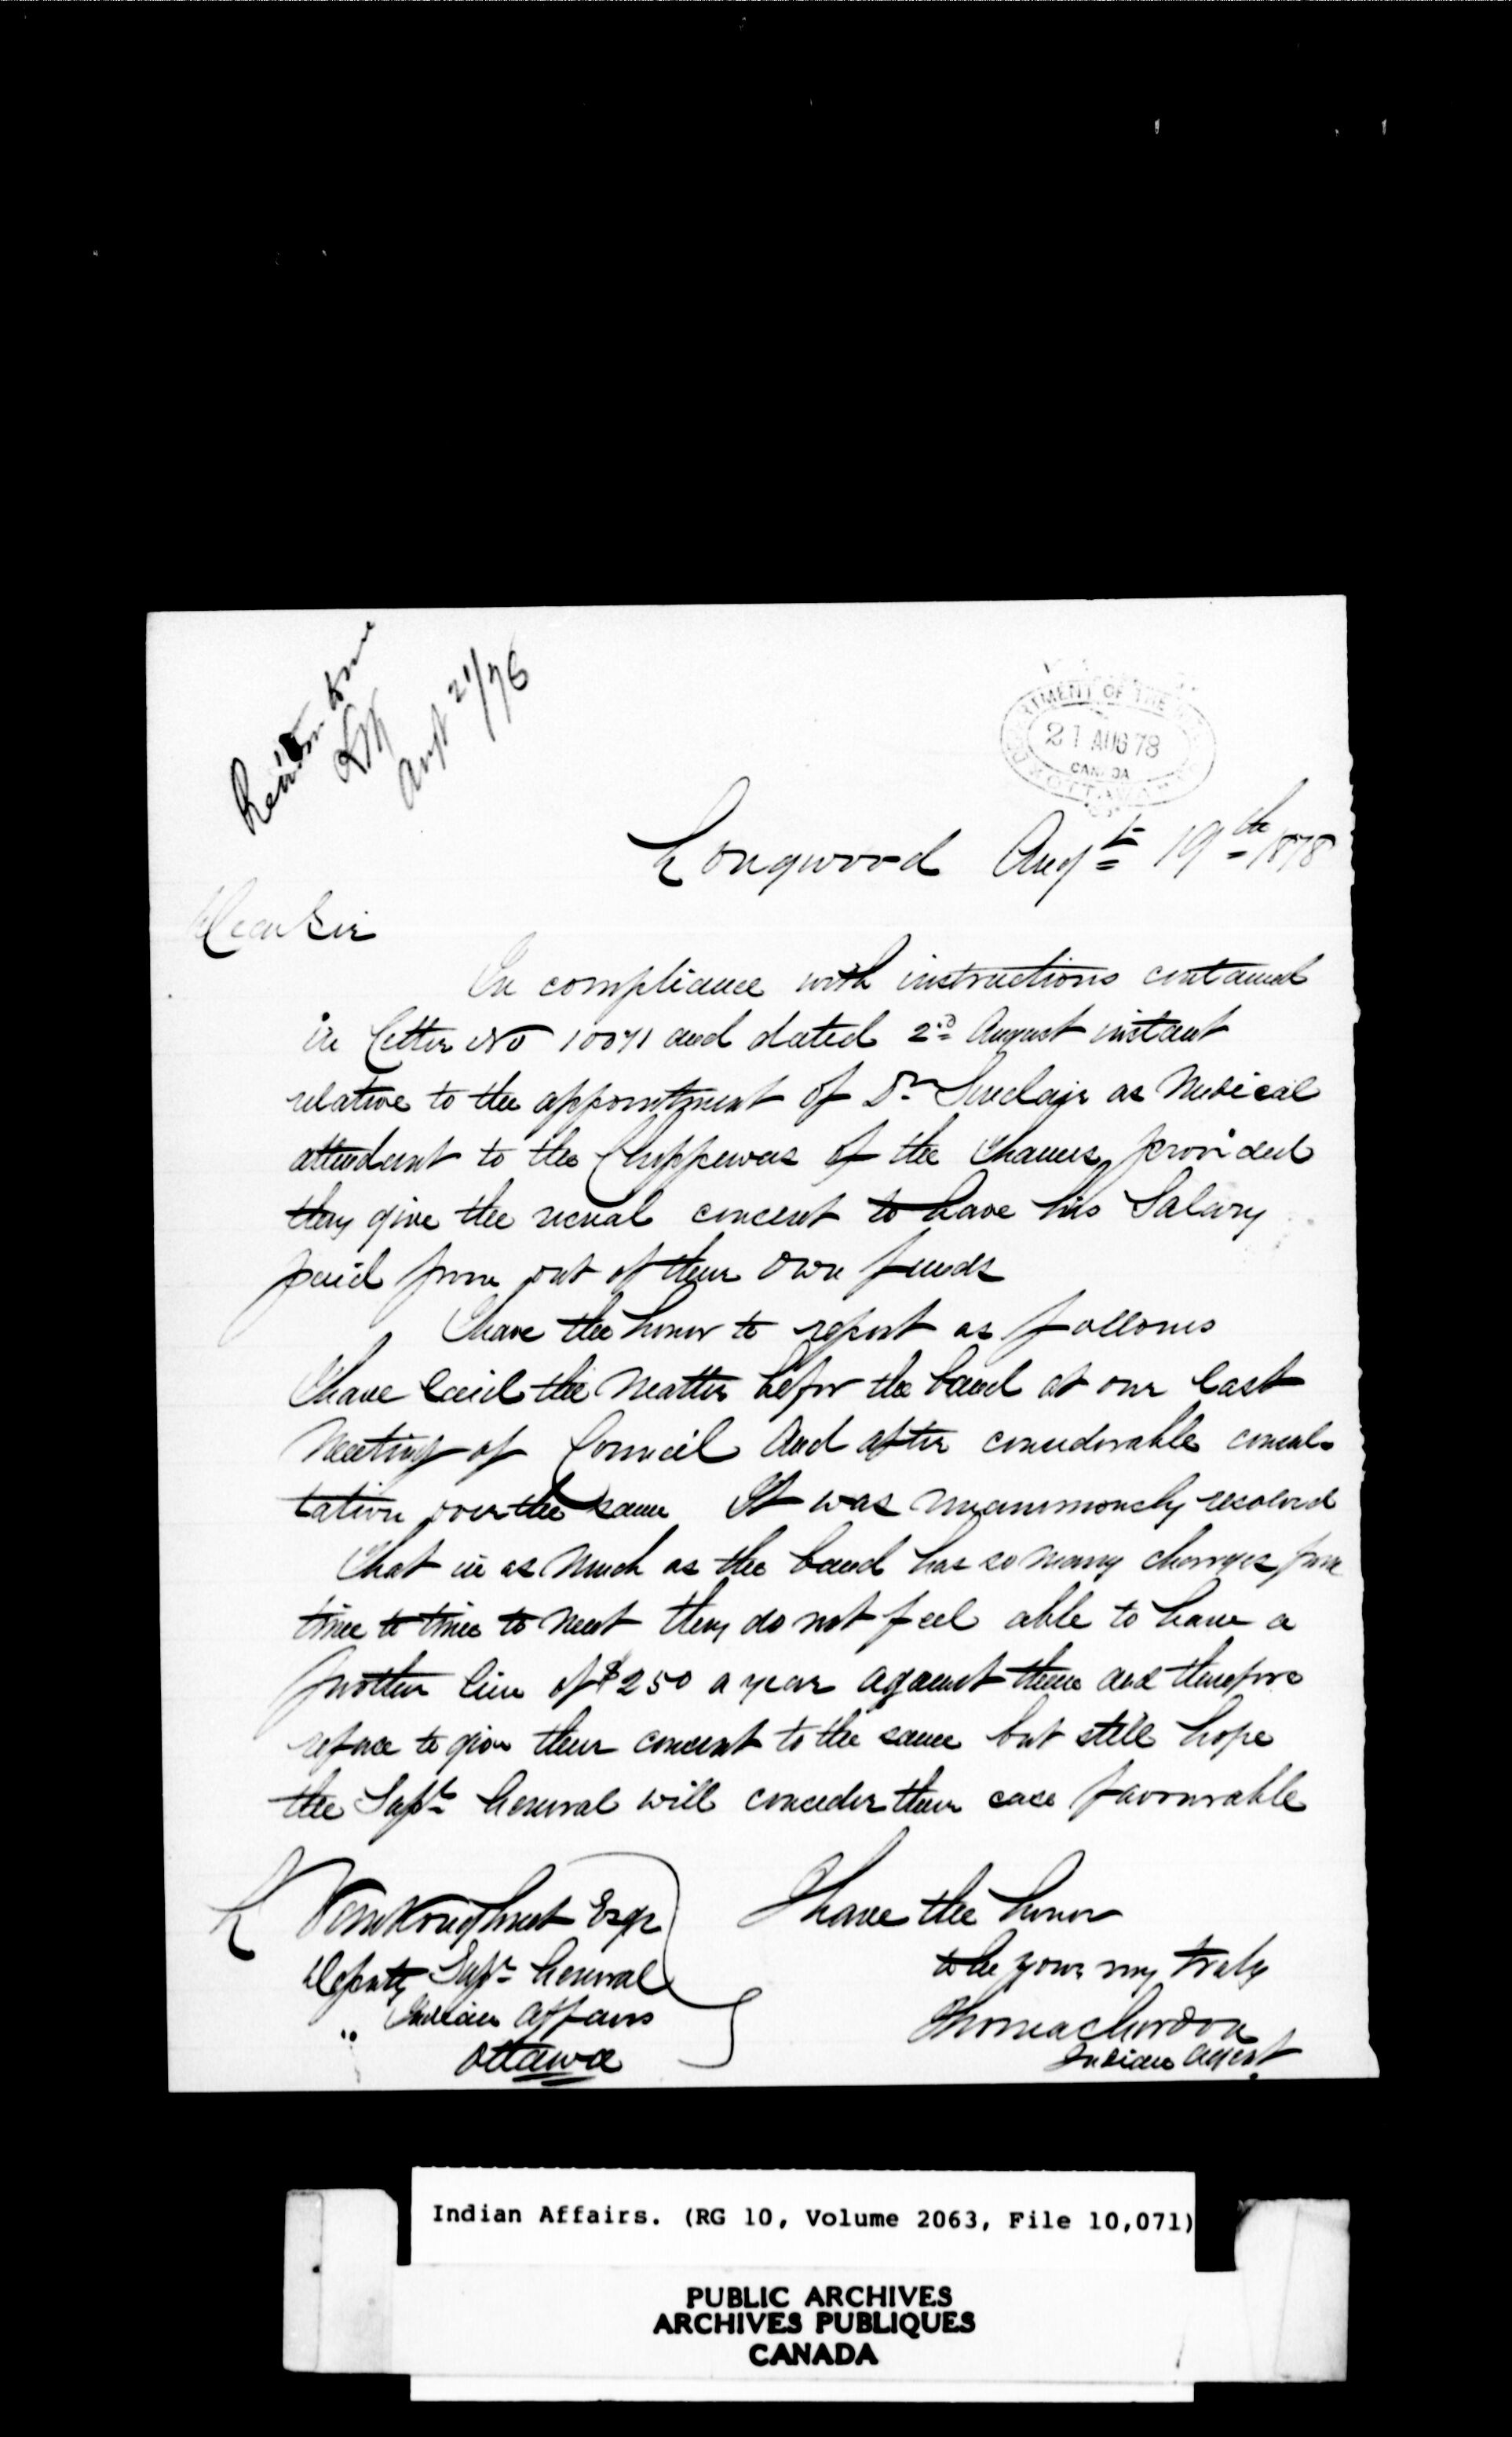 Return to me
LVK
Augt 21/78
DEPARTMENT OF THE
21 AUG 78
CANADA
OTTAWA
Longwood Augt 19th 1878
Dear Sir
In compliance with instructions contained
in letter No 10071 and dated 2nd August instant
relative to the appointment of Dr Sinclair as Medical
attendant to the Chippewas of the Thames, provided
they give the usual concent to have his Salary
paid from out of their own funds
I have the honor to report as follows
I have laid the matter befor the band at our last
Meeting of Council And after considerable consul-
tation over the same It was unanimously resolved
That in as Much as the band has so many charges from
time to time to meet they do not feel able to have a
further lien of $250 a year against them and therefore
refuce to give their concent to the same but still hope
the Supt General will conceder their case favourable
L VanKoughnet Esqr
Deputy Supt General
Indian Affairs
Ottawa
I have the honor
to be yours very truly
Thomas Gordon
Indian Agent
Indian Affairs. (RG 10, Volume 2063, File 10,071)
PUBLIC ARCHIVES
ARCHIVES PUBLIQUES
CANADA